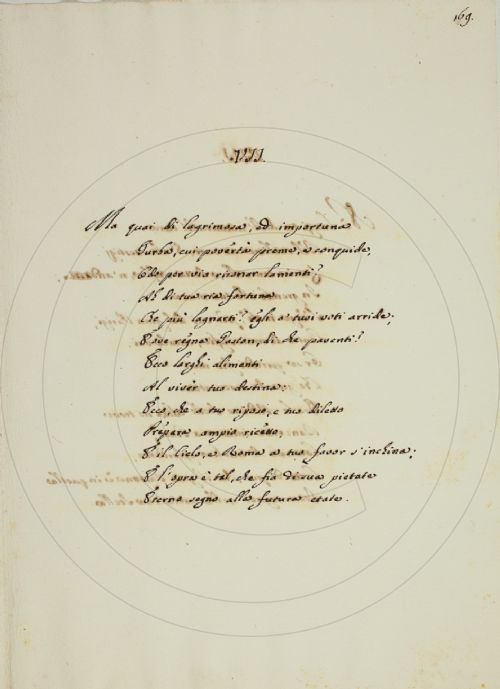 169.
VII.
Ma quai di lagrimosa, ed importuna
Turba, cui povertà preme, e conquide,
Odo per via risonar lamenti?
Ah di tua ria fortuna
Che più lagnarti? egli a' tuoi voti arride;
E ove regna Pastor, di che paventi?
Ecco larghi alimenti
Al viver tuo destina:
Ecco, che a tuo riposo, e tuo diletto
Prepara ampio ricetto
E il Cielo, e Roma a tuo favor s'inchina;
E l'opra è tal, che fia di sua pietate
Eterno segno alle future etate.